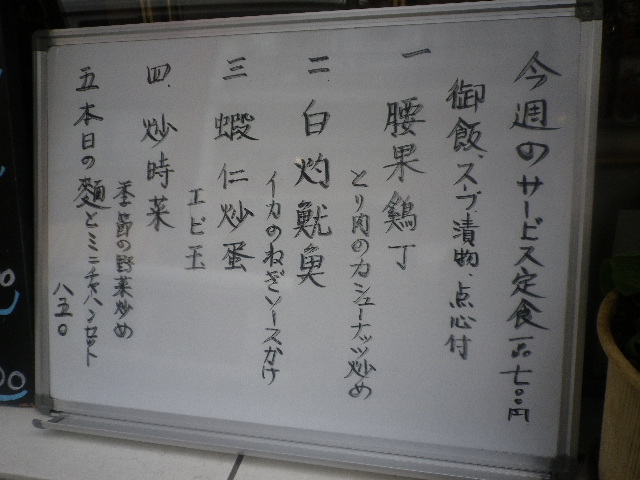 今週のサービス定食一品七〇〇円
御飯、スープ、漬物、点心付
一 腰果鶏丁
とり肉のカシューナッツ炒め
二 白灼魷魚
イカのねぎソースかけ
三 蝦仁炒蛋
エビ玉
四 炒時菜
季節の野菜炒め
五 本日の麺とミニチャーハンセット
八五〇